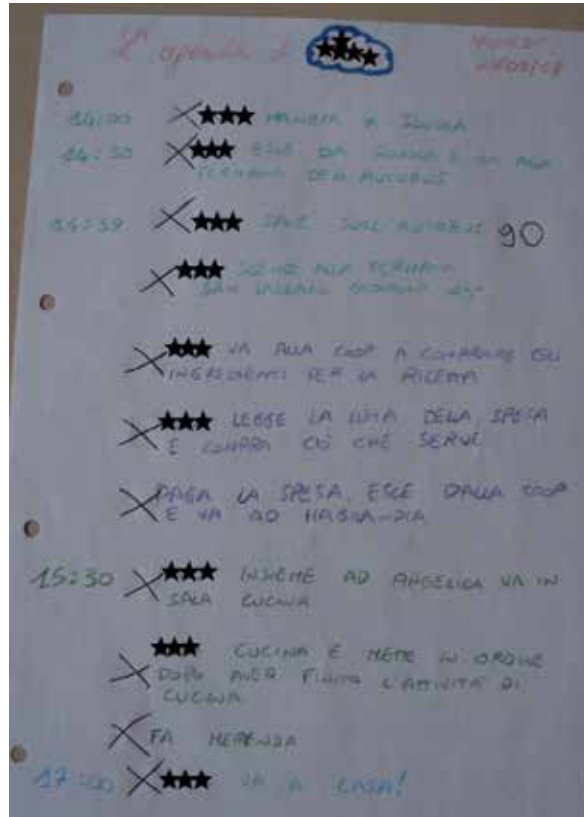 L'agenda di
14:00 MANGIA A SCUOLA
14:30 ESCE DA SCUOLA E VA ALLA
FERMATA DELL'AUTOBUS
14:39 SALE SULL'AUTOBUS 90
SCENDE ALLA FERMATA
SAN
VA ALLA COOP A COMPRARE GLI
INGREDIENTI PER LA RICETTA
LEGGE LA LISTA DELLA SPESA
E COMPRA CIÒ CHE SERVE
PAGA LA SPESA, ESCE DALLA COOP
E VA AD HABILANDIA
15:30 INSIEME AD ANGELICA VA IN
SALA CUCINA
CUCINA E METTE IN ORDINE
DOPO AVER FINITO L'ATTIVITÀ DI
CUCINA
FA MERENDA
17:00 VA A CASA!